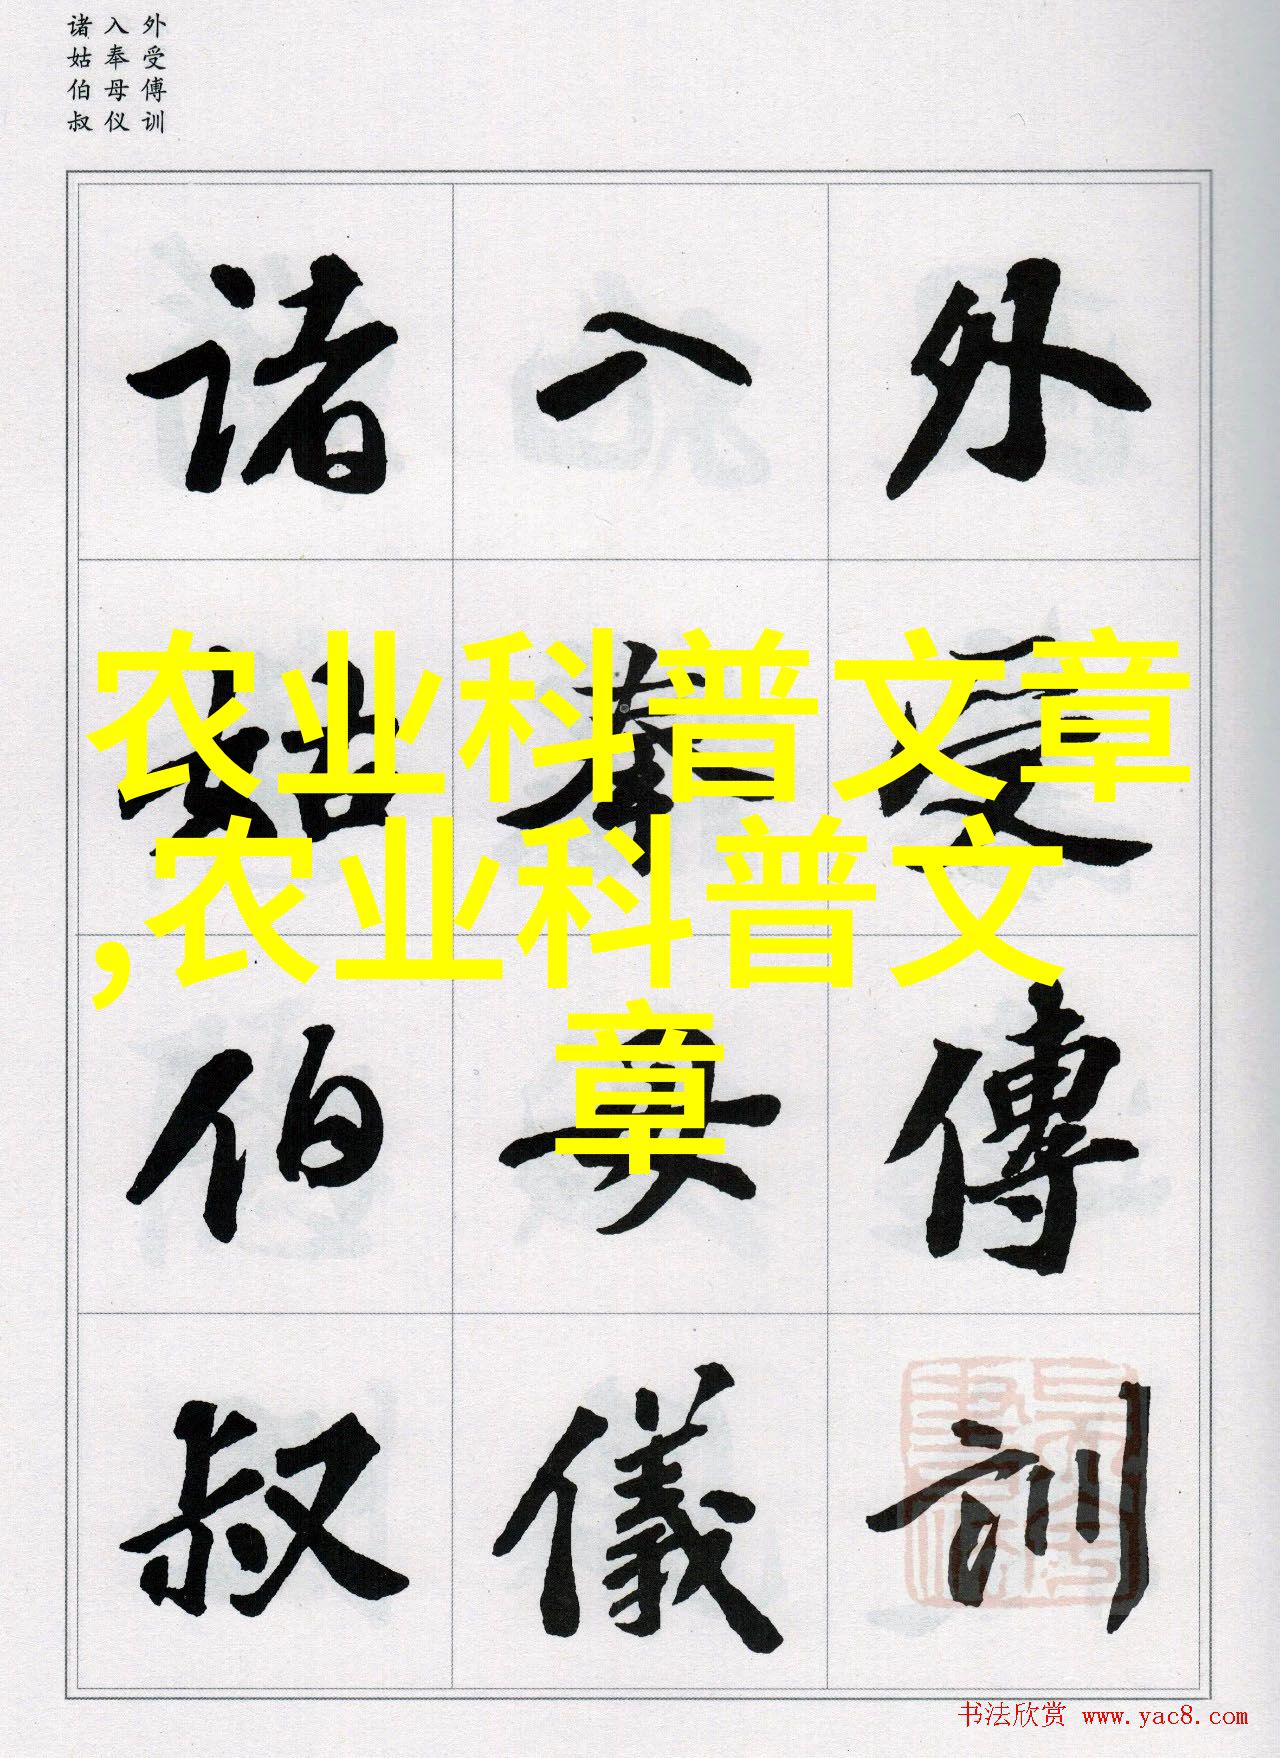 诸入外
姑奉受
伯母傅
叔仪训
诸入外
姑奉受
伯母傅
叔儀訓
农业科普文章
,农业科普文
章
书法欣赏 www.yac8.com